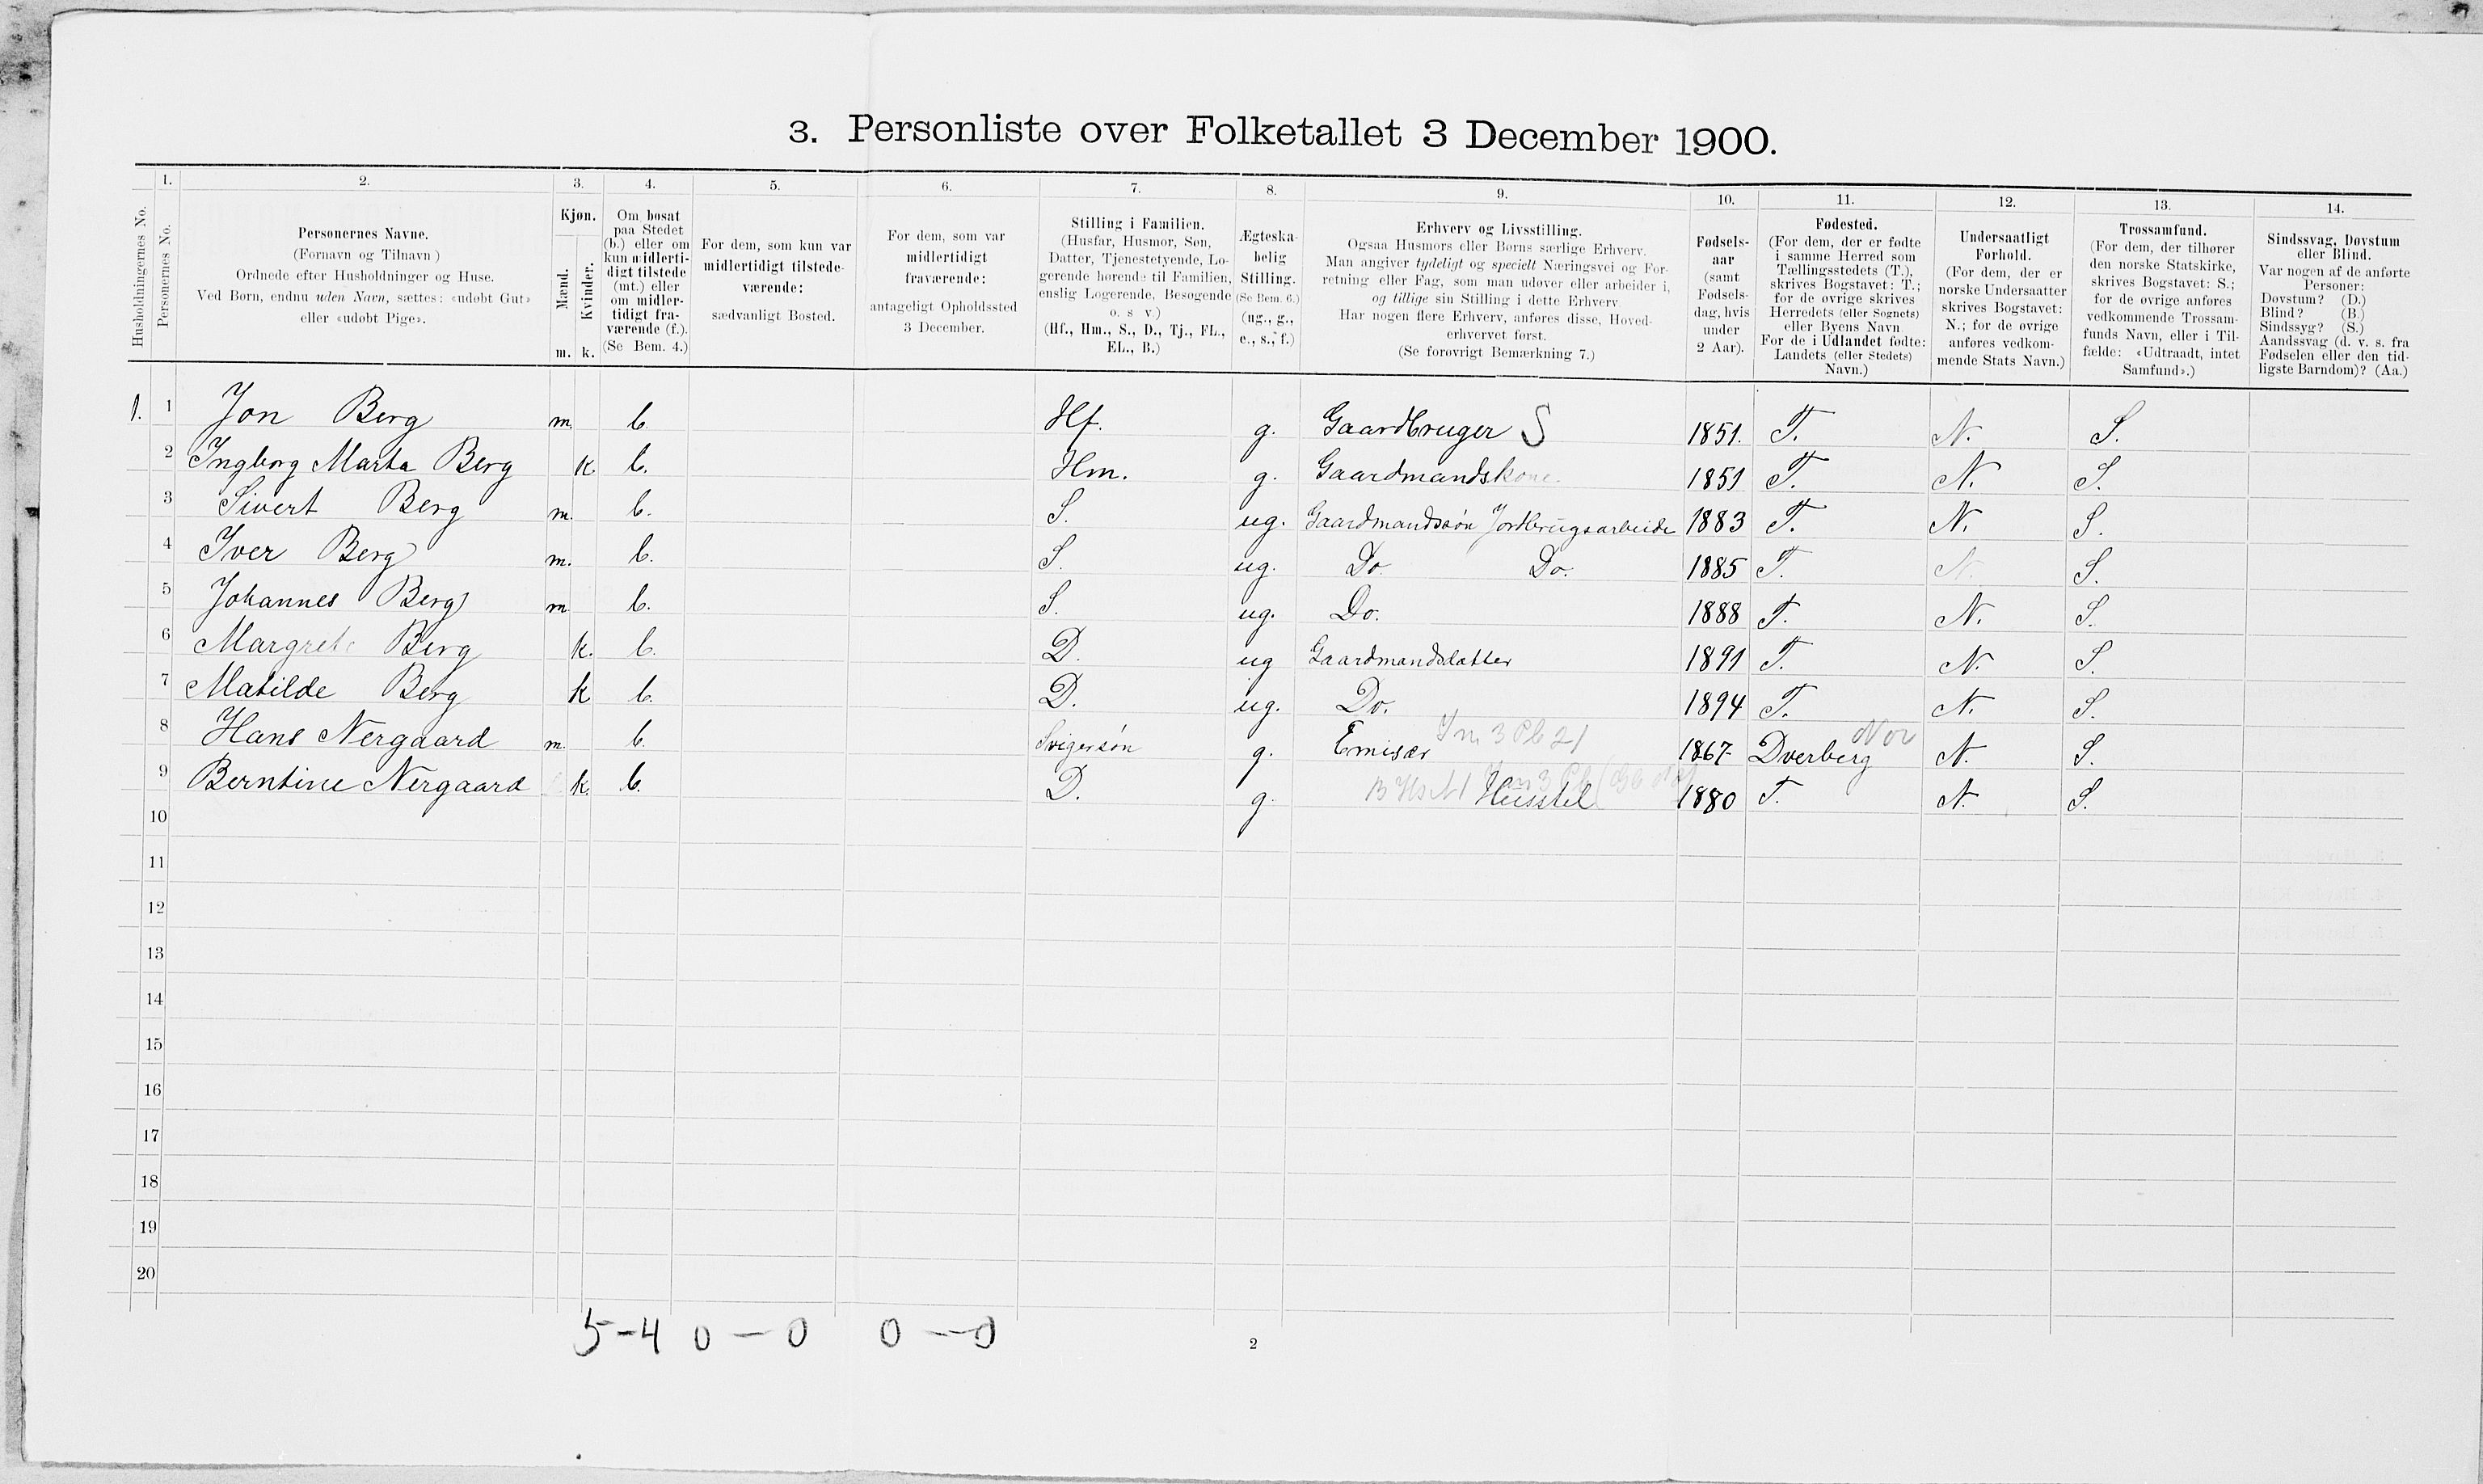 3. Personliste over Folketallet 3 December 1900.
1. 2. 3. 4. 5. 6. 7. 8. 9. 10. 11. 12. 13. 14.
Husholdningernes No.
Personernes No.
Personernes Navne.
(Fornavn og Tilnavn)
Ordnede efter Husholdninger og Huse.
Ved Børn, endnu uden Navn, sættes: «udøbt Gut»
eller «udøbt Pige».
Kjøn.
Mænd.
Kvinder.
m. k.
Om bosat
paa Stedet
(b.) eller om
kun midlerti-
digt tilstede
(mt.) eller
om midler-
tidigt fra-
værende (f.).
(Se Bem. 4.)
For dem, som kun var
midlertidigt tilstede-
værende:
sædvanligt Bosted.
For dem, som var
midlertidigt
fraværende:
antageligt Opholdssted
3 December.
Stilling i Familien.
(Husfar, Husmor, Søn,
Datter, Tjenestetyende, Lo-
gerende hørende til Familien,
enslig Logerende, Besøgende
o. s v.)
(Hf., Hm., S., D., Tj., FL.,
EL., B.)
Ægteska-
belig
Stilling.
(Se Bem. 6.)
(ug., g.,
e., s., f.)
Erhverv og Livsstilling.
Ogsaa Husmors eller Børns særlige Erhverv.
Man angiver tydeligt og specielt Næringsvei og For-
retning eller Fag, som man udøver eller arbeider i,
og tillige sin Stilling i dette Erhverv
Har nogen flere Erhverv, anføres disse, Hoved-
erhvervet først.
(Se forøvrigt Bemærkning 7.)
Fødsels-
aar
(samt
Fødsels-
dag, hvis
under
2 Aar).
Fødested.
(For dem, der er fødte
i samme Herred som
Tællingsstedets (T.),
skrives Bogstavet: T.;
for de øvrige skrives
Herredets (eller Sognets)
eller Byens Navn
For de i Udlandet fødte:
Landets (eller Stedets)
Navn.)
Undersaatligt
Forhold.
(For dem, der er
norske Undersaatter
skrives Bogstavet:
N.; for de øvrige
anføres vedkom-
mende Stats Navn.)
Trossamfund.
(For dem, der tilhører
den norske Statskirke,
skrives Bogstavet: S.;
for de øvrige anføres
vedkommende Trossam-
funds Navn, eller i Til-
fælde: «Udtraadt, intet
Samfund».)
Sindssvag, Døvstum
eller Blind.
Var nogen af de anførte
Personer:
Døvstum? (D.)
Blind? (B.)
Sindssyg? (S.)
Aandssvag (d. v. s. fra
Fødselen eller den tid-
ligste Barndom)? (Aa.)
1. 1 Jon Berg m. b. Hf. g. Gaardbruger S 1851. T. N. S.
2 Ingborg Marta Berg k. b. Hm. g. Gaardmandskone. 1851 T. N. S.
3 Sivert Berg m. b. S. ug. Gaardmandssøn Jordbrugsarbeide 1883 T. N. S.
4 Iver Berg m. b. S. ug. Do. Do. 1885 T. N. S.
5 Johannes Berg m. b. S. ug. Do. 1888 T. N. S.
6 Margrete Berg k. b. D. ug Gaardmandsdatter 1891 T. N. S.
7 Matilde Berg k b. D. ug. Do. 1894 T. N. S.
8 Hans Nergaard m. b. Svigersøn g. Emisær 1867 Dverberg Nor N. S.
9 Berntine Nergaard k. b. D. g. Husstel 1880 T. N. S.
10
11
12
13
14
15
16
17
18
19
20
5-4 0-0 0-0
2